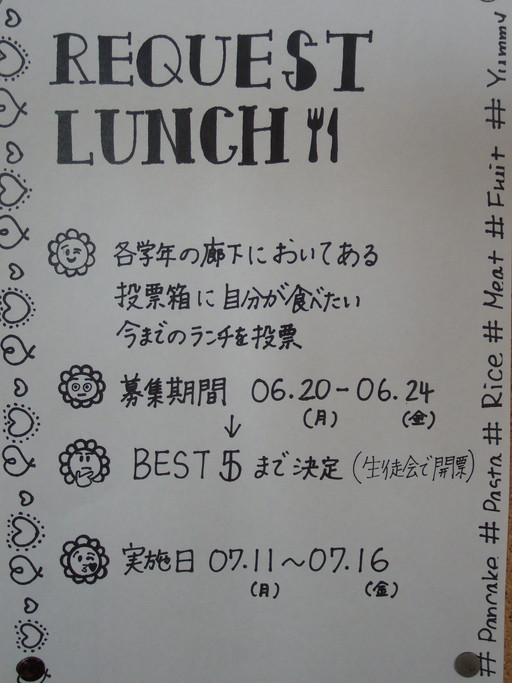 REQUEST
LUNCH
各学年の廊下においてある
投票箱に自分が食べたい
今までのランチを投票
募集期間 06.20-06.24
(月) (金)
↓
BEST 5 まで決定 (生徒会で開票)
実施日 07.11～07.16
(月) (金)
# Pancake # Pasta # Rice # Meat # Fruit # Yummy